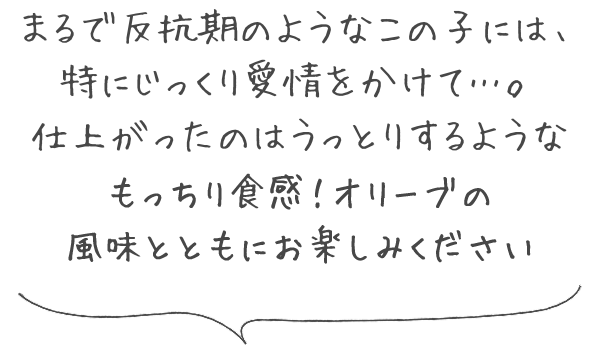 まるで反抗期のようなこの子には、
特にじっくり愛情をかけて…。
仕上がったのはうっとりするような
もっちり食感！オリーブの
風味とともにお楽しみください